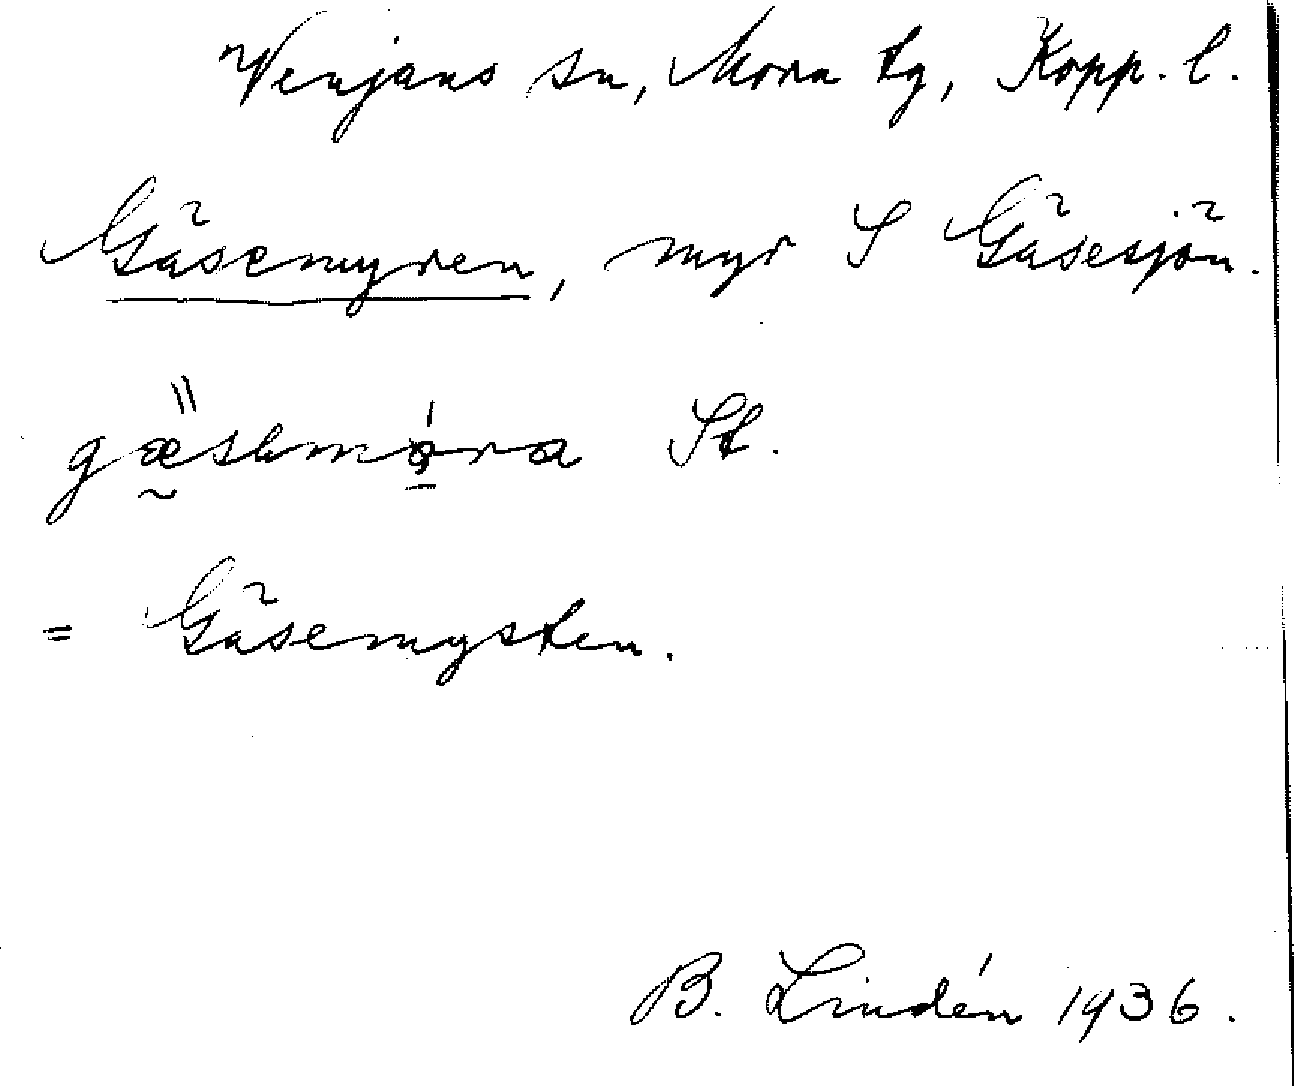 Venjans sn, Mora tg, Kopp. l.
Gäsemyren, myr S Gäsesjön.
St.
= Gäsemysten.
B. Lindén 1936.